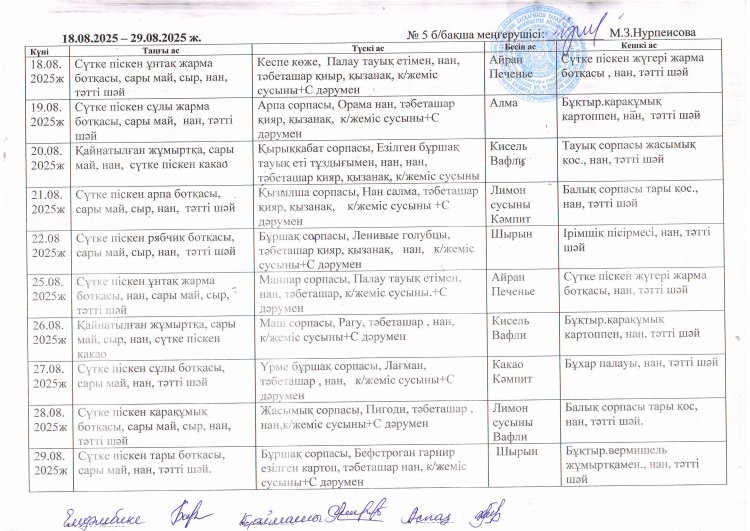 18.08.2025 – 29.08.2025 ж. № 5 б/бақша меңгерушісі: М.З.Нурпеисова
Күні Таңғы ас Түскі ас Бесін ас Кешкі ас
18.08. Сүтке піскен ұнтақ жарма Кеспе көже, Палау тауық етімен, нан, Айран Сүтке піскен жүгері жарма
2025ж ботқасы, сары май, сыр, нан, тәбеташар қияр, қызанақ, к/жеміс Печенье ботқасы , нан, тәтті шәй
тәтті шәй сусыны+С дәрумен
19.08. Сүтке піскен сұлы жарма Арпа сорпасы, Орама нан, тәбеташар Алма Бұқтыр.қарақұмық
2025ж ботқасы, сары май, нан, тәтті қияр, қызанақ, к/жеміс сусыны+С картоппен, нан, тәтті шәй
шәй дәрумен
20.08. Қайнатылған жұмыртқа, сары Қырыққабат сорпасы, Езілген бұршақ Кисель Тауық сорпасы жасымық
2025ж май, нан, сүтке піскен какао тауық еті тұздығымен, нан, нан, Вафли қос., нан, тәтті шәй
тәбеташар қияр, қызанақ, к/жеміс сусыны
21.08. Сүтке піскен арпа ботқасы, Қызылша сорпасы, Нан салма, тәбеташар Лимон Балық сорпасы тары қос.,
2025ж сары май, сыр, нан, тәтті шәй қияр, қызанақ, к/жеміс сусыны +С сусыны нан, тәтті шәй
дәрумен Кәмпит
22.08 Сүтке піскен рябчик ботқасы, Бұршақ сорпасы, Ленивые голубцы, Шырын Ірімшік пісірмесі, нан, тәтті
2025ж сары май, сыр, нан, тәтті шәй тәбеташар қияр, қызанақ, нан, к/жеміс шәй
сусыны+С дәрумен
25.08. Сүтке піскен ұнтақ жарма Манпар сорпасы, Палау тауық етімен, Айран Сүтке піскен жүгері жарма
2025ж ботқасы, нан, сары май, сыр, нан, тәбеташар, к/жеміс сусыны.+С Печенье ботқасы, нан, тәтті шәй
тәтті шәй дәрумен
26.08. Қайнатылған жұмыртқа, сары Маш сорпасы, Рагу, тәбеташар , нан, Кисель Бұқтыр.қарақұмық
2025ж май, сыр, нан, сүтке піскен к/жеміс сусыны+С дәрумен Вафли картоппен, нан, тәтті шәй
какао
27.08. Сүтке піскен сұлы ботқасы, Үрме бұршақ сорпасы, Лағман, Какао Бұхар палауы, нан, тәтті шәй
2025ж сары май, нан, тәтті шәй тәбеташар , нан, к/жеміс сусыны+С Кәмпит
дәрумен
28.08. Сүтке піскен қарақұмық Жасымық сорпасы, Пигоди, тәбеташар , Лимон Балық сорпасы тары қос,
2025ж ботқасы, сары май, сыр, нан, нан,к/жеміс сусыны+С дәрумен сусыны нан, тәтті шәй
тәтті шәй Вафли
29.08. Сүтке піскен тары ботқасы, Бұршақ сорпасы, Бефстроган гарнир Шырын Бұқтыр.вермишель
2025ж сары май, нан, тәтті шәй. езілген картоп, тәбеташар нан, к/жеміс жұмыртқамен., нан, тәтті
сусыны+С дәрумен шәй